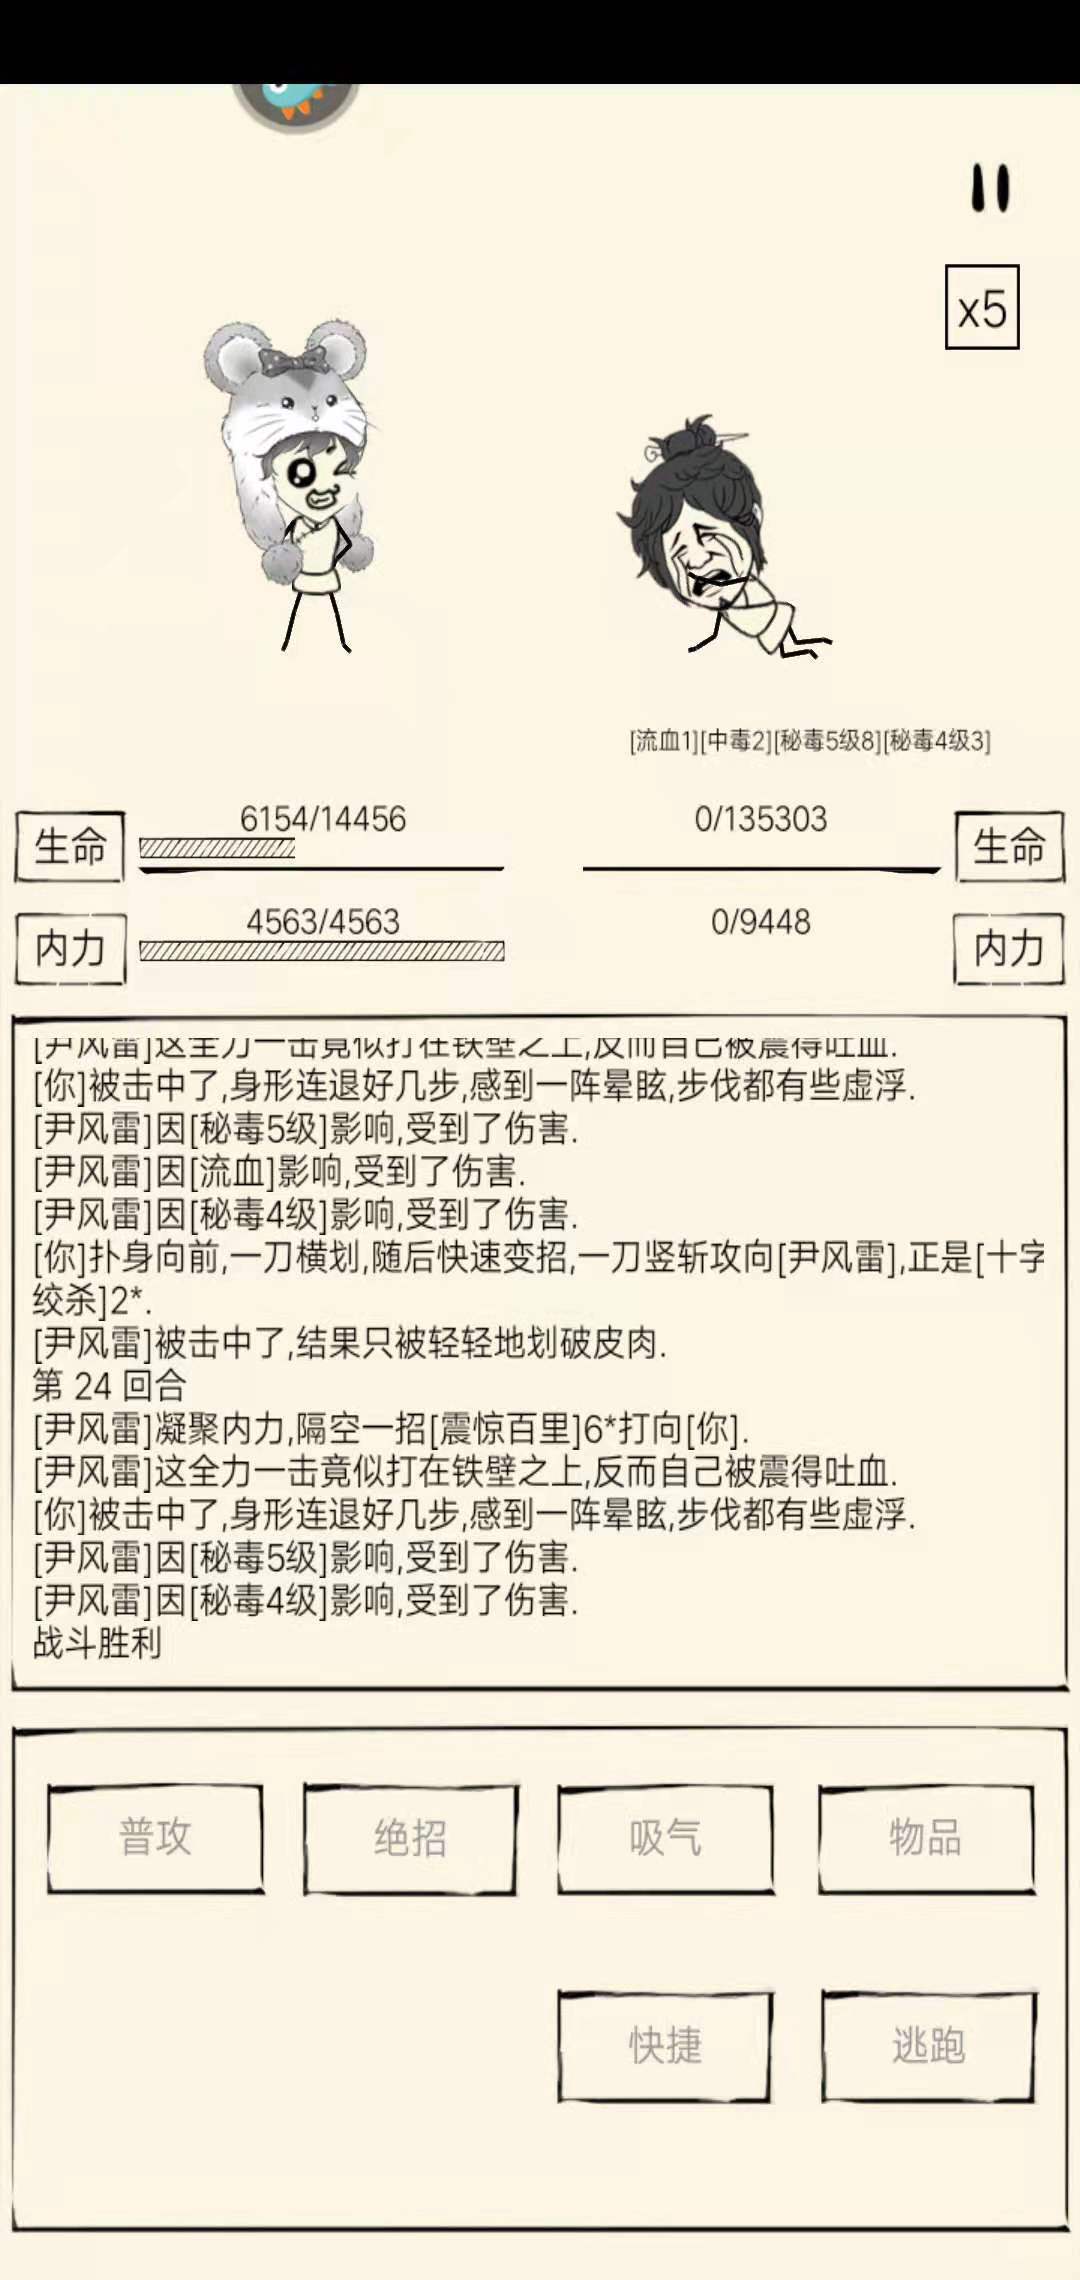 x5
[流血1][中毒2][秘毒5级8][秘毒4级3]
6154/14456
0/135303
生命
生命
4563/4563
0/9448
内力
内力
[尹风雷]这全力一击竟似打在铁壁之上,反而自己被震得吐血.
[你]被击中了,身形连退好几步,感到一阵晕眩,步伐都有些虚浮.
[尹风雷]因[秘毒5级]影响,受到了伤害.
[尹风雷]因[流血]影响,受到了伤害.
[尹风雷]因[秘毒4级]影响,受到了伤害.
[你]扑身向前,一刀横划,随后快速变招,一刀竖斩攻向[尹风雷],正是[十字
绞杀]2*.
[尹风雷]被击中了,结果只被轻轻地划破皮肉.
第 24 回合
[尹风雷]凝聚内力,隔空一招[震惊百里]6*打向[你].
[尹风雷]这全力一击竟似打在铁壁之上,反而自己被震得吐血.
[你]被击中了,身形连退好几步,感到一阵晕眩,步伐都有些虚浮.
[尹风雷]因[秘毒5级]影响,受到了伤害.
[尹风雷]因[秘毒4级]影响,受到了伤害.
战斗胜利
普攻
绝招
吸气
物品
快捷
逃跑